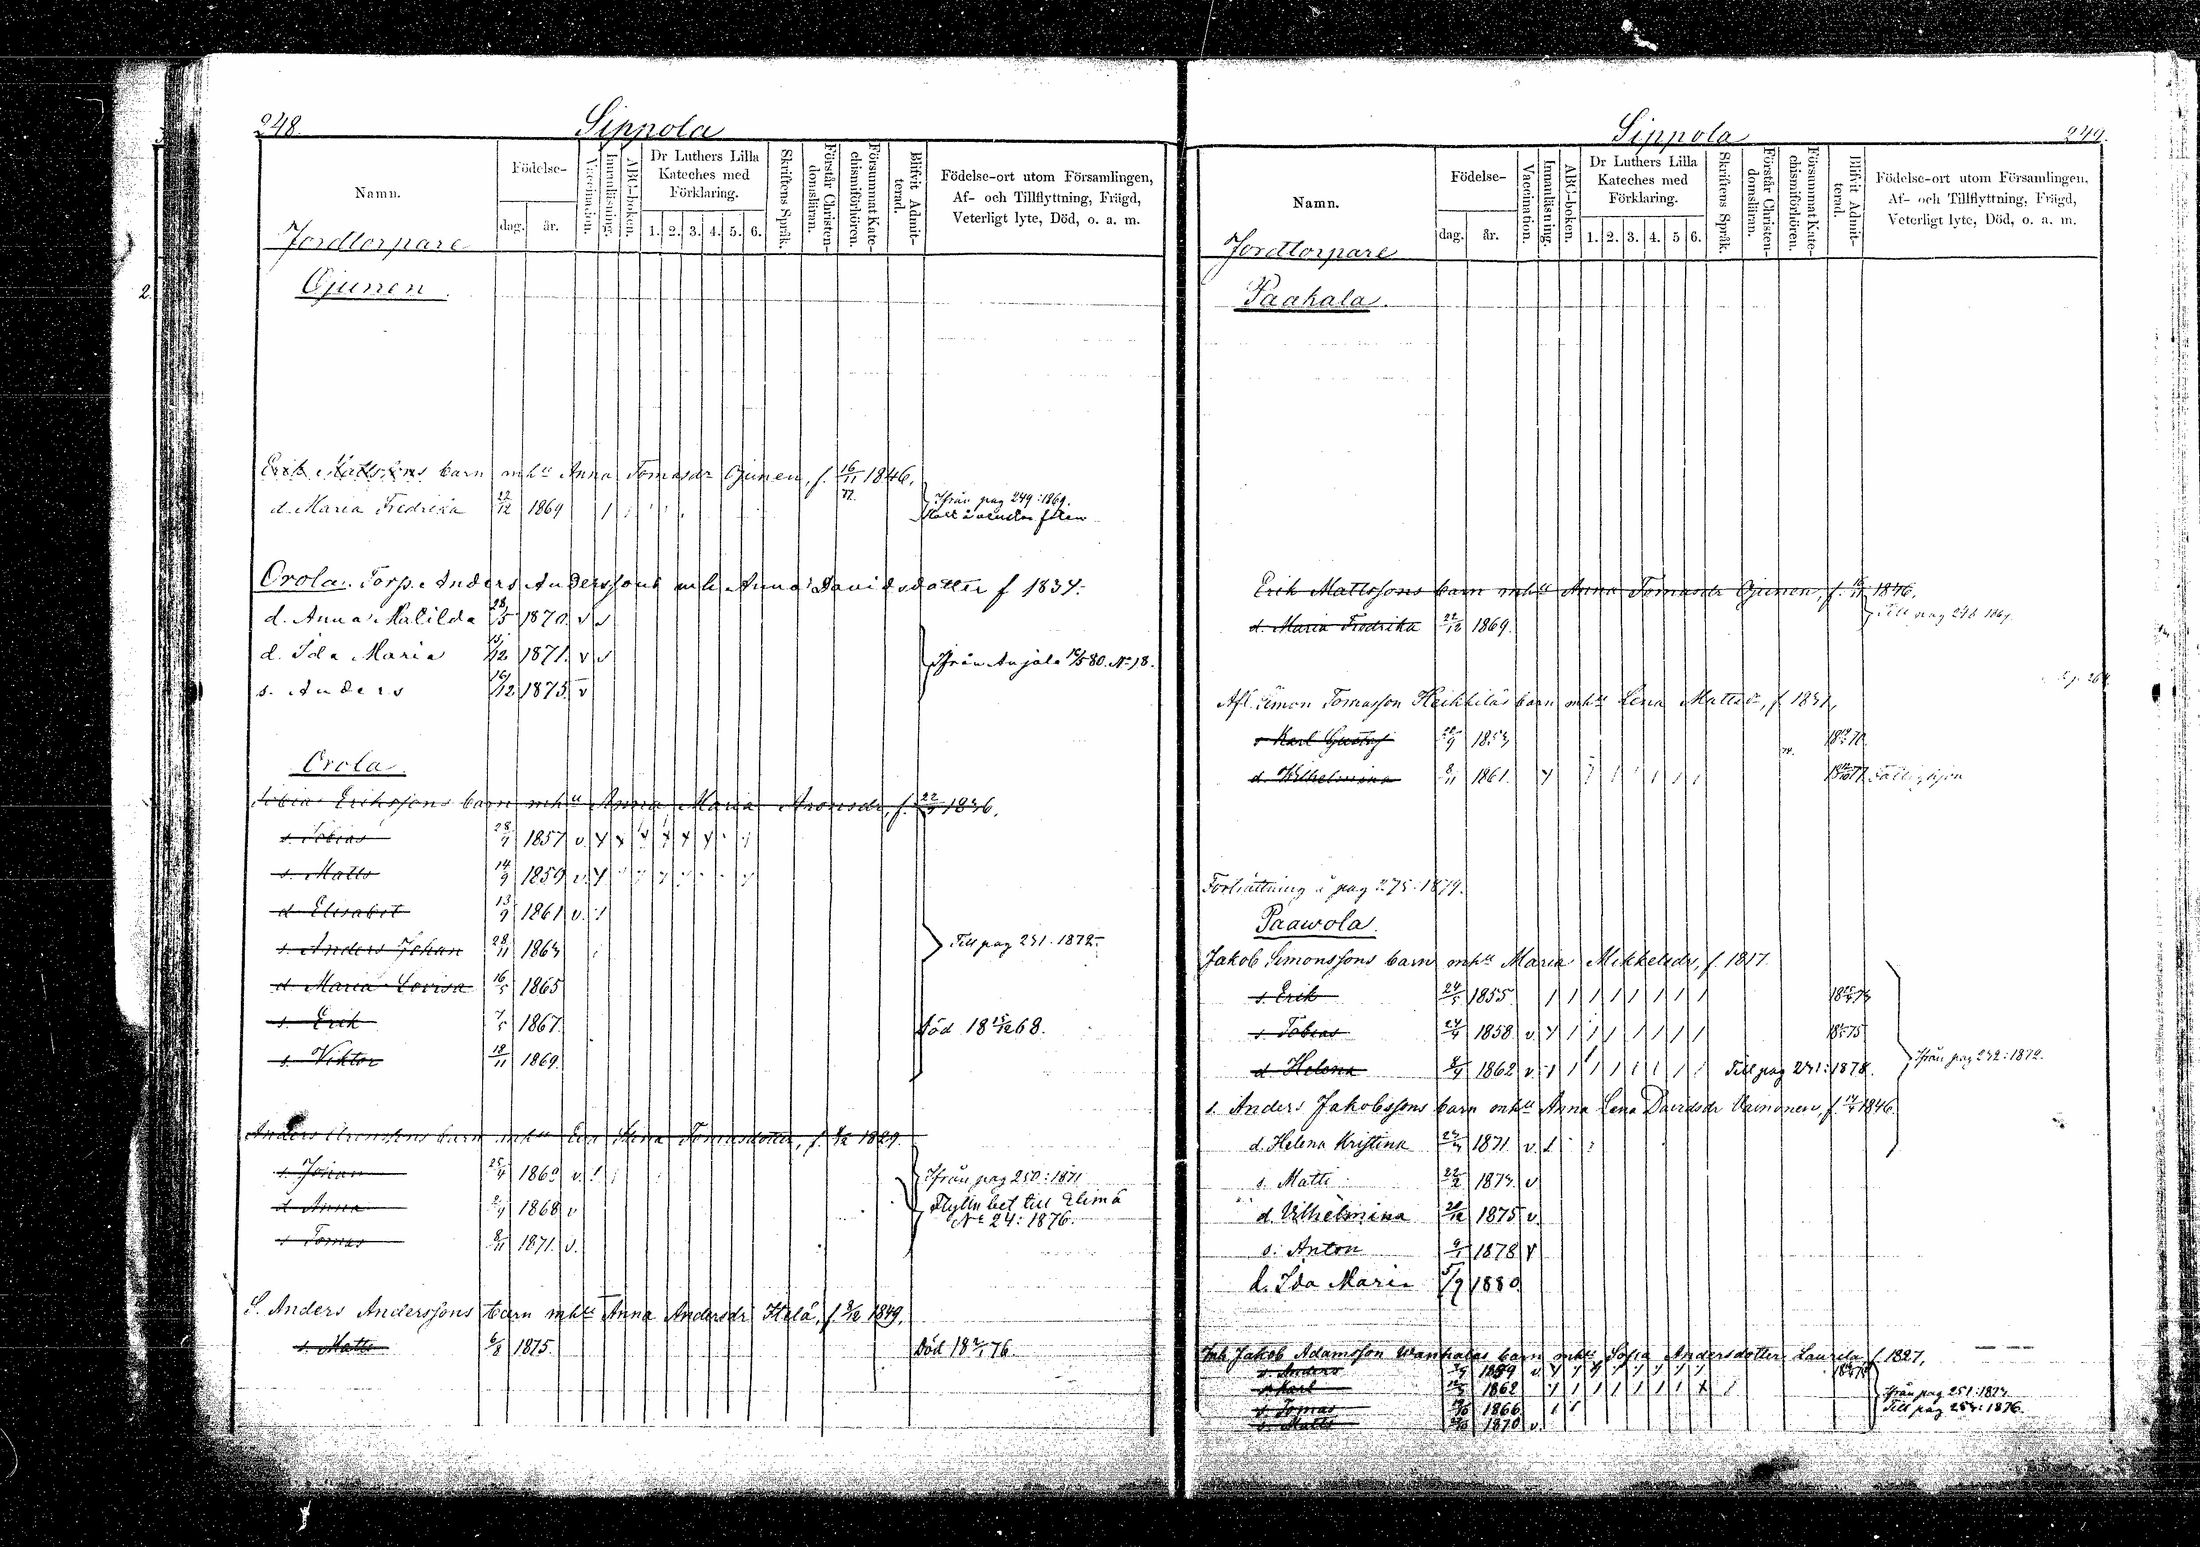 248.
Sippola
Namn.
Födelse-
dag. år.
Vaccination.
Innanläsning.
ABC-boken.
Dr Luthers Lilla
Kateches med
Förklaring.
1. 2. 3. 4. 5. 6.
Skriftens Språk.
Förstår Christen-
domsläran.
Försummat Kate-
chismiförhören.
Blifvit Admit-
terad.
Födelse-ort utom Församlingen,
Af- och Tillflyttning, Frägd,
Veterligt lyte, Död, o. a. m.
Jordtorpare
Ojunen.
Erik Mattssons barn mhu Anna Tomasdr Ojunen, f. 16/11 1846.
d. Maria Fredrika 22/12 1869 Ifrån pag 249:1869.
Orola. Torp. Anders Anderssons mh Anna Davidsdotter f 1834.
d. Anna Matilda 28/5 1870 v
d. Ida Maria 15/12 1871. v Ifrån Anjala 12/5 80. No 18.
s. Anders 16/12 1875. v
Orola.
Tobias Erikssons barn mhu Anna Maria Aronsdr, f. 1836.
s. Tobias 28/9 1857 v
s. Matts 14/9 1859 v
d. Elisabet 13/9 1861 v.
s. Anders Johan 28/11 1863 Till pag 231. 1872.
d. Maria Lovisa 16/5 1865
s. Erik 7/5 1867. Död 18 15/12 68.
s. Viktor 18/11 1869.
Anders Aronssons barn mhu Eva Stina Tomasdotter, f. 1829.
s. Johan 25/4 1860 v.
Ifrån pag 250:1871
d. Anna 1868 v Flyttn.bet till Elimä
No 24: 1876.
s. Tomas 8/11 1871. v.
S. Anders Anderssons barn mhu Anna Andersdr Helä, f. 3/12 1849.
s. Matts 6/8 1875. Död 76.
Sippola
249.
Namn.
Födelse-
dag. år.
Vaccination.
Innanläsning.
ABC-boken.
Dr Luthers Lilla
Kateches med
Förklaring.
1. 2. 3. 4. 5 6.
Skriftens Språk.
Förstår Christen-
domsläran.
Försummat Kate-
chismiförhören.
Blifvit Admit-
terad.
Födelse-ort utom Församlingen,
Af- och Tillflyttning, Frägd,
Veterligt lyte, Död, o. a. m.
Jordtorpare
Paakala.
Erik Mattssons barn mhu Anna Tomasdr Ojunen, f. 16/11 1846.
Till pag 248 1869.
d. Maria Fredrika 22/12 1869.
Afl. Simon Tomasson Heikkiläs barn mhu Lena Mattsdr, f 1831,
s Karl Gustaf 1853
d. Wilhelmina 8/11 1861.
Fortsättning å pag 275:1879.
Paawola.
Jakob Simonssons barn mhu Maria Mikkelsdr, f. 1817.
s. Erik 24/5 1855
s. Tobias 24/4 1858 v
d. Helena 1862 v Till pag 231: 1878. Ifrån pag 232:1872.
s. Anders Jakobssons barn mhu Anna Lena Davidsdr Vainonen, f 1846.
d. Helena Kristina 1871 v.
s. Matti 22/2 1873. v
d. Vilhelmina 20/12 1875 v
s. Anton 9/1 1878 v
d. Ida Maria 5/9 1880.
Inh. Jakob Adamsson Wanhalas barn mhu Sofia Andersdotter Laurila f. 1827,
s. Anders 1859 v.
s. Karl 1862 Ifrån pag 251:1873
s. Tomas 1866 Till pag 253: 1876.
s. Matts 1870 v.